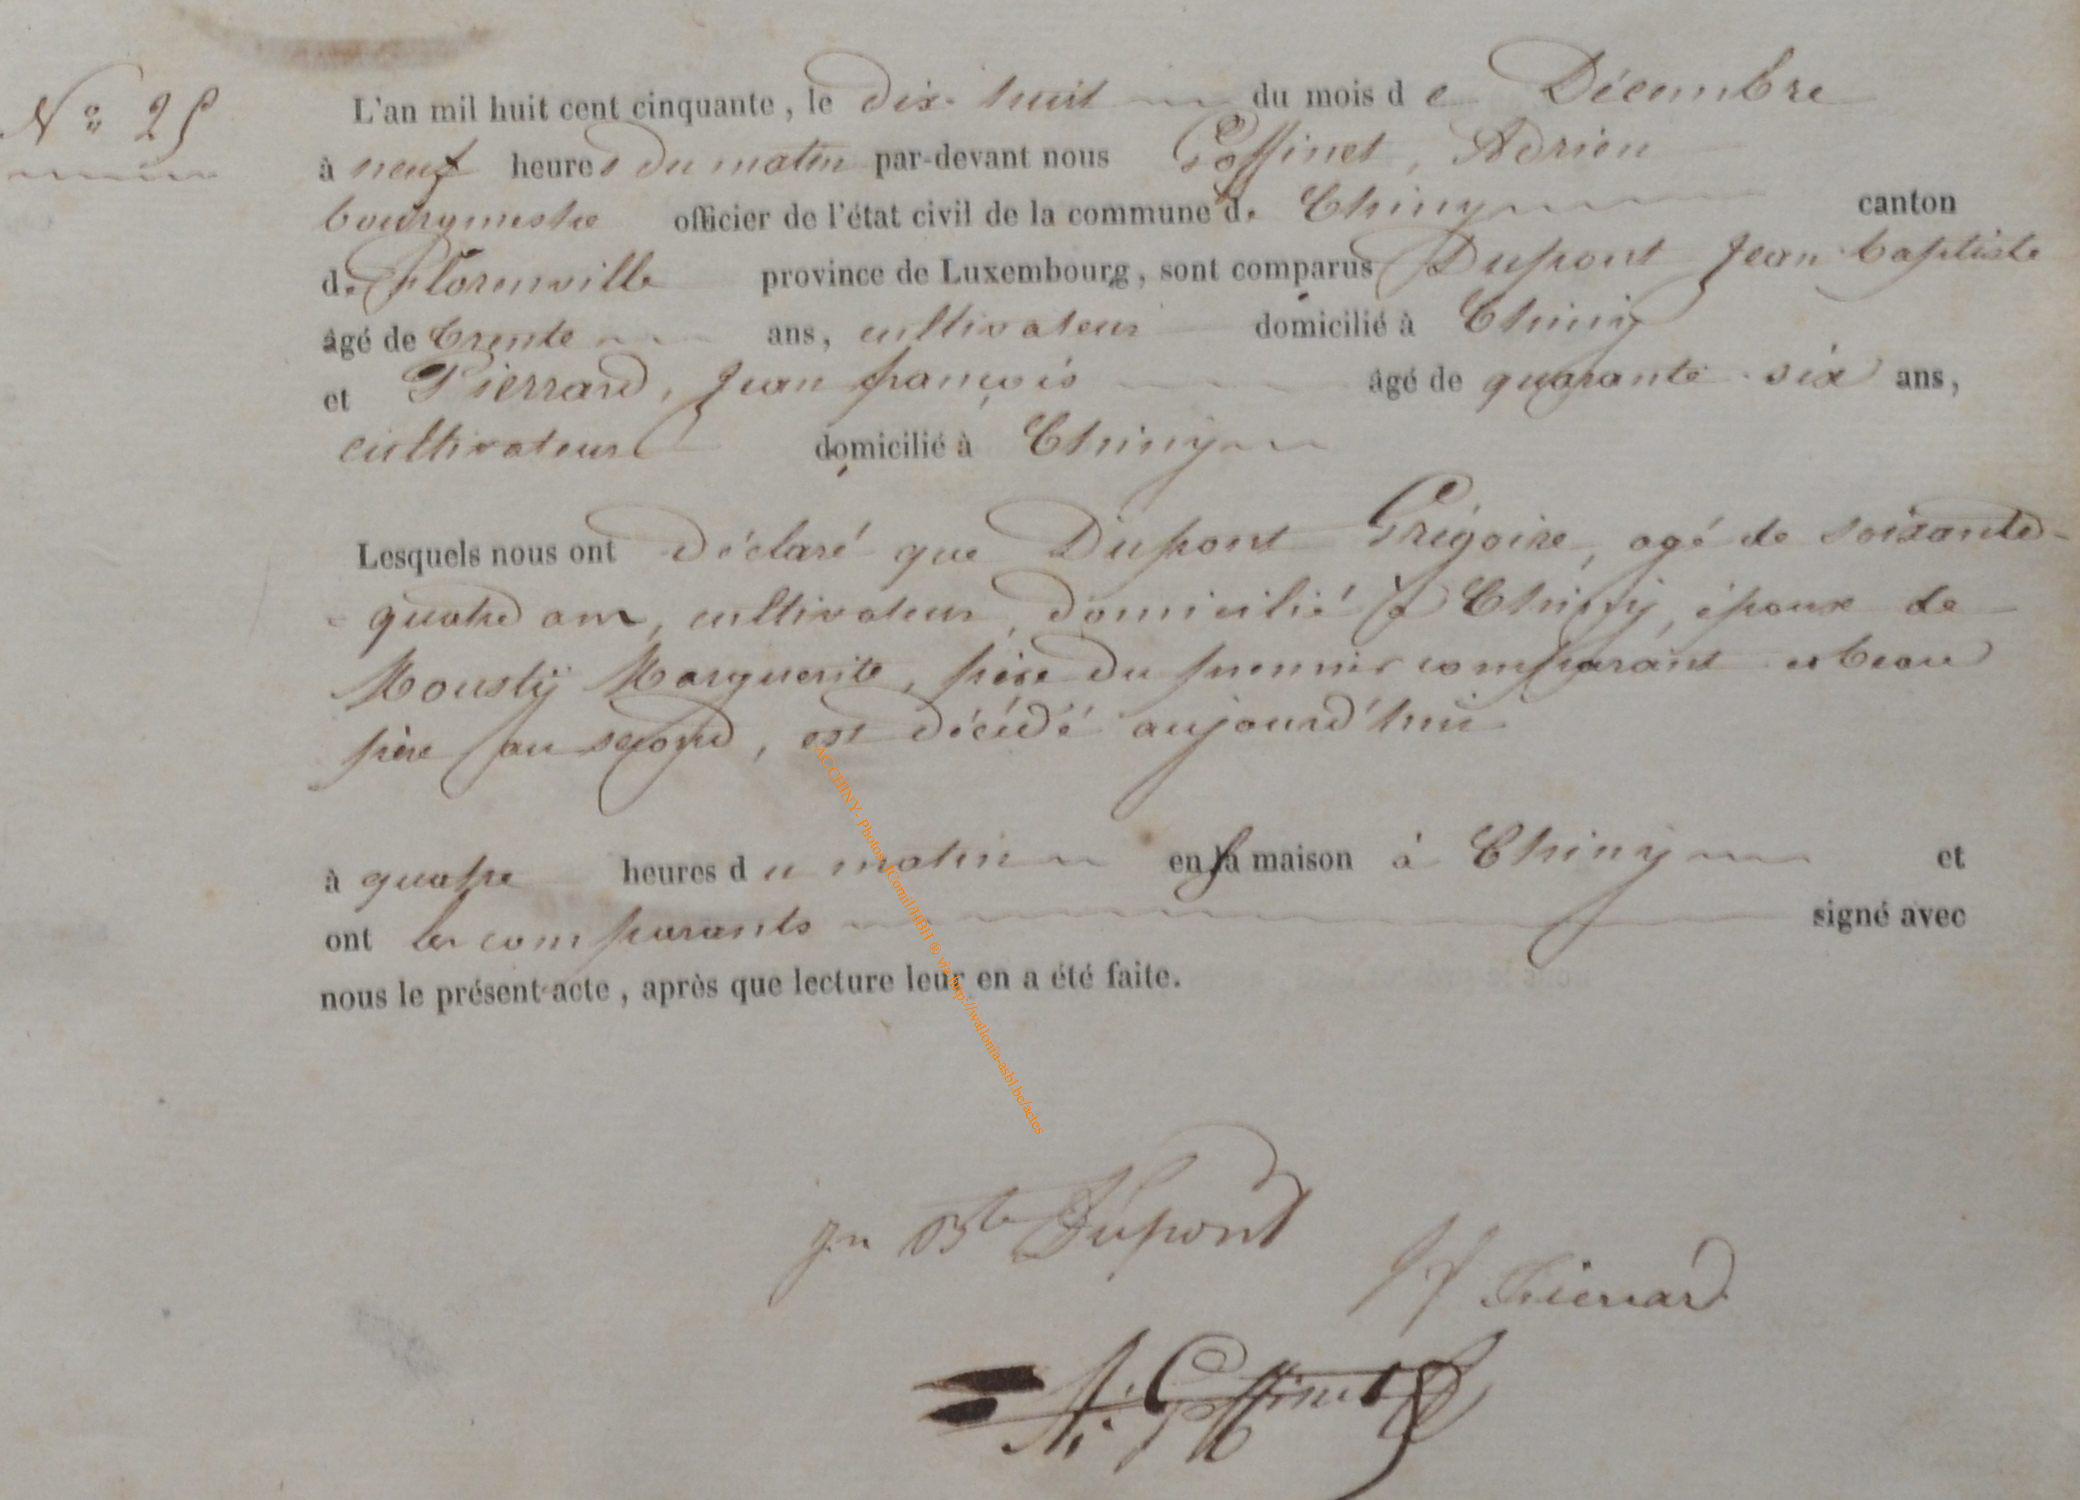 N° 25
L'an mil huit cent cinquante, le dix-huit du mois de Décembre
à neuf heures du matin par-devant nous Goffinet, Adrien
bourgmestre officier de l'état civil de la commune de Chiny canton
de Florenville province de Luxembourg, sont comparus Dupont Jean baptiste
âgé de trente ans, cultivateur domicilié à Chiny
et Pierrard, Jean françois âgé de quarante-six ans,
cultivateur domicilié à Chiny
Lesquels nous ont déclaré que Dupont Grégoire, agé de soixante-
-quatre ans, cultivateur, domicilié à Chiny, époux de
Mousty Marguerite, père du premier comparant et beau
père au second, est décédé aujourd'hui
à quatre heures du matin en sa maison à Chiny et
ont les comparants signé avec
nous le présent acte, après que lecture leur en a été faite.
AC CHINY- Photos JComil/HBH ® via http://wallonia-asbl.be/actes
Jn Bte Dupont
JF Pierrard
A. Goffinet